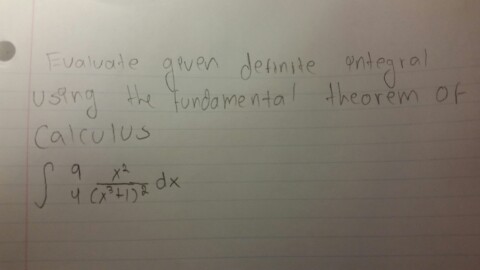 Evaluate given definite integral
using the fundamental theorem of
Calculus
∫ 9 4 x²/(x³+1)² dx